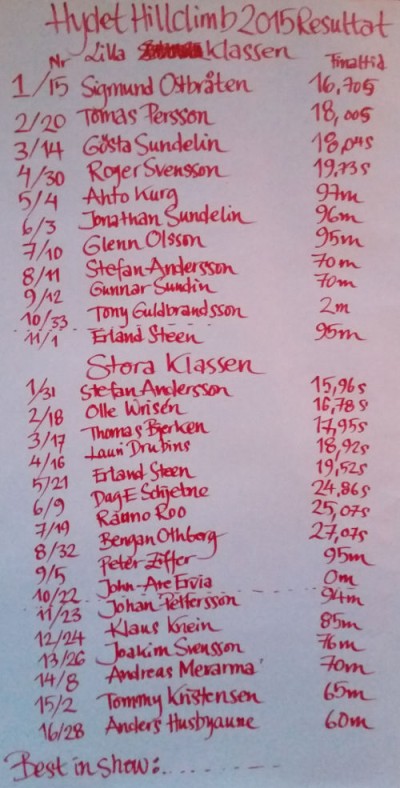 Hydet Hillclimb 2015 Resultat
Nr Lilla Klassen Finaltid
1/15 Sigmund Ostbråten 16,70s
2/20 Tomas Persson 18,00s
3/14 Gösta Sundelin 18,04s
4/30 Roger Svensson 19,73s
5/4 Ahto Kurg 97m
6/3 Jonathan Sundelin 96m
7/10 Glenn Olsson 95m
8/11 Stefan Andersson 70m
9/12 Gunnar Sundin 70m
10/33 Tony Guldbrandsson 2m
11/1 Erland Steen 95m
Stora Klassen
1/31 Stefan Andersson 15,96s
2/18 Olle Wrisén 16,78s
3/17 Thomas Bjerken 17,95s
4/16 Lauri Drubins 18,92s
5/21 Erland Steen 19,52s
6/9 Dag E Schjebne 24,86s
7/19 Raimo Roo 25,07s
8/32 Bengan Othberg 27,07s
9/5 Peter Ziffer 95m
10/22 John-Are Ervia 0m
11/23 Johan Pettersson 94m
12/24 Klaus Knein 85m
13/26 Joakim Svensson 76m
14/8 Andreas 70m
15/2 Tommy Kristensen 65m
16/28 Anders 60m
Best in show:..............